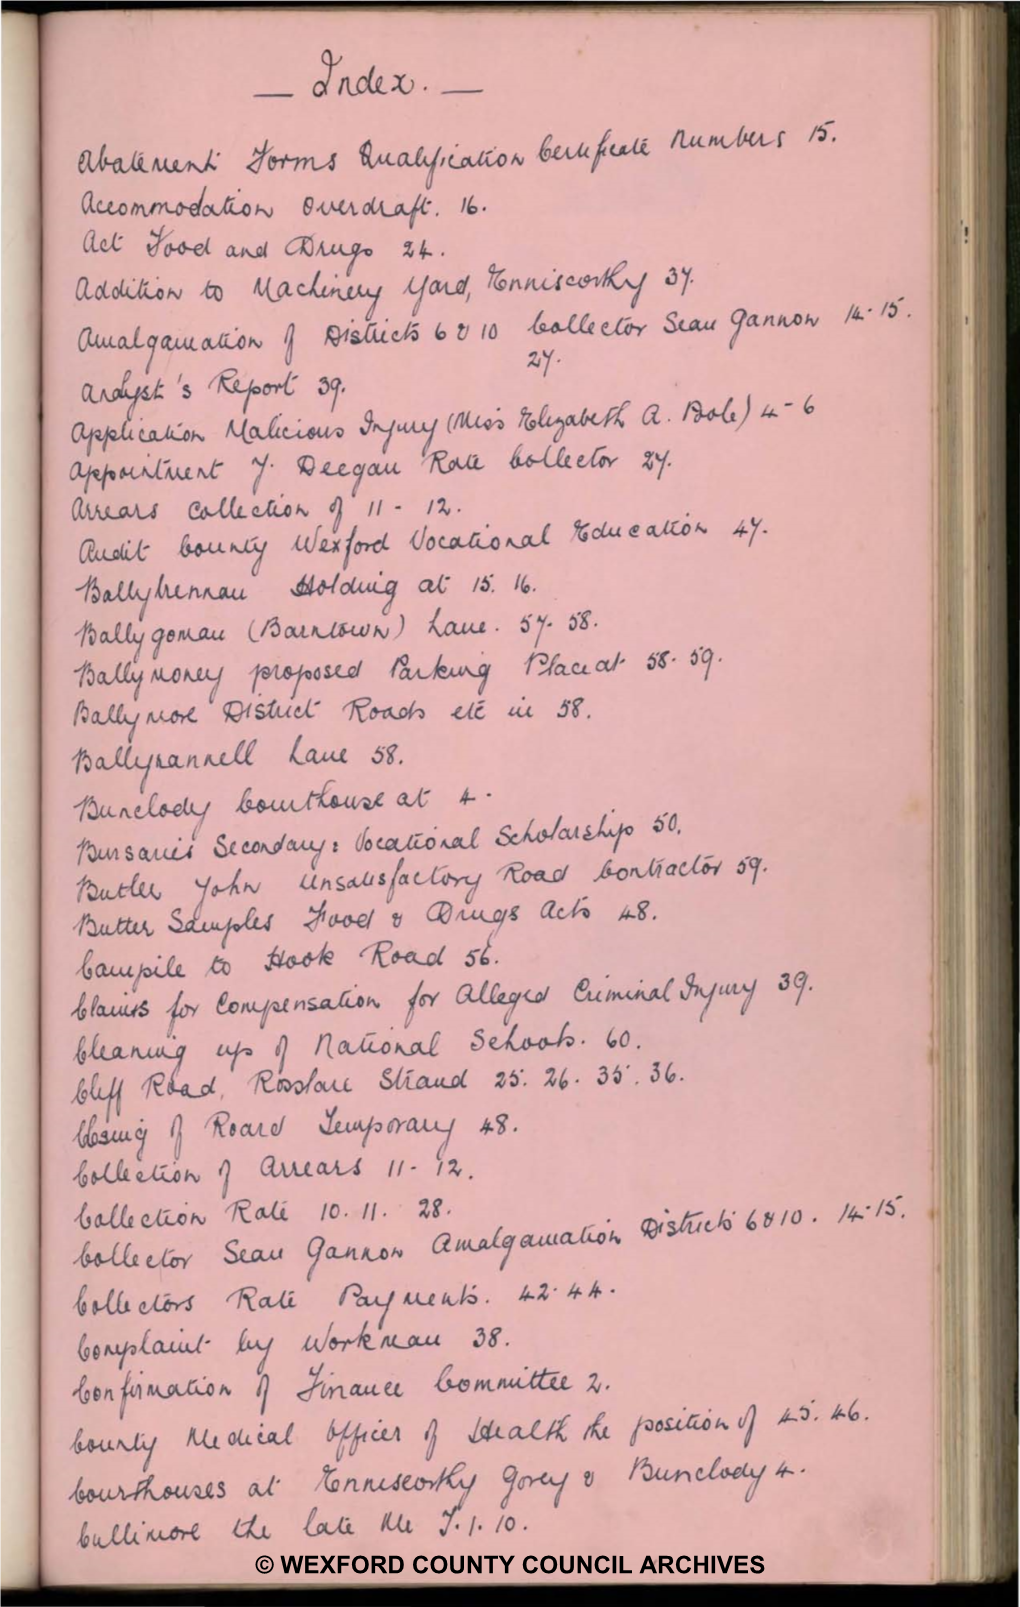 — Index. —
Abatement Forms Qualification Certificate Numbers 15.
Accommodation Overdraft. 16.
Act Food and Drugs 24.
Addition to Machinery Yard, Enniscorthy 37.
Amalgamation of Districts 6 & 10 Collector Sean Gannon 14-15.
27.
Analyst's Report 39.
Application Malicious Injury (Miss Elizabeth A. Bole) 4-6
Appointment J. Deegan Rate Collector 27.
Arrears Collection of 11-12.
Audit County Wexford Vocational Education 47.
Ballybrennan Holding at 15. 16.
Ballygoman (Barntown) Lane. 57. 58.
Ballymoney proposed Parking Place at 58. 59.
Ballymore District Roads etc in 58.
Ballyrannell Lane 58.
Bunclody Courthouse at 4.
Bursaries Secondary: Vocational Scholarship 50.
Butler John Unsatisfactory Road Contractor 59.
Butter Samples Food & Drugs Acts 48.
Campile to Hook Road 56.
Claims for Compensation for Alleged Criminal Injury 39.
Cleaning up of National Schools. 60.
Cliff Road, Rosslare Strand 25. 26. 35. 36.
Closing of Road Temporary 48.
Collection of Arrears 11-12.
Collection Rate 10. 11. 28.
Collector Sean Gannon Amalgamation Districts 6 & 10. 14-15.
Collectors Rate Payments. 42. 44.
Complaint by Workman 38.
Confirmation of Finance Committee 2.
County Medical Officer of Health the position of 45. 46.
Courthouses at Enniscorthy Gorey & Bunclody 4.
Cullimore the late Mr J. 1. 10.
© WEXFORD COUNTY COUNCIL ARCHIVES